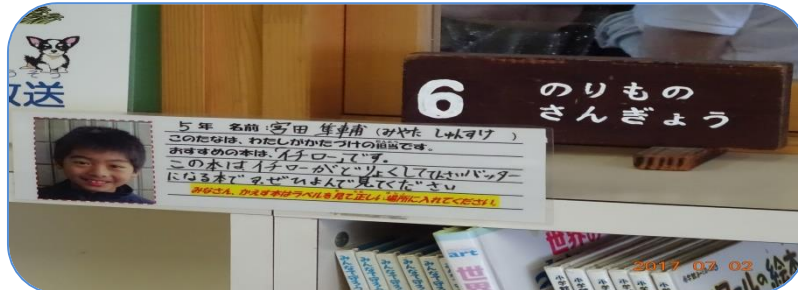 放送
6
のりもの
さんぎょう
5年 名前 宮田 隼輔 (みやた しゅんすけ )
このたなは、わたしがかたづけの担当です。
おすすめの本は、「イチロー」です。
この本はイチローがどりょくして天さいバッター
になる本でぜひよんで見てください
みなさん、かえす本はラベルを見て正しい場所に入れてください。
art
世界
世界の
の絵本
2017 07 02